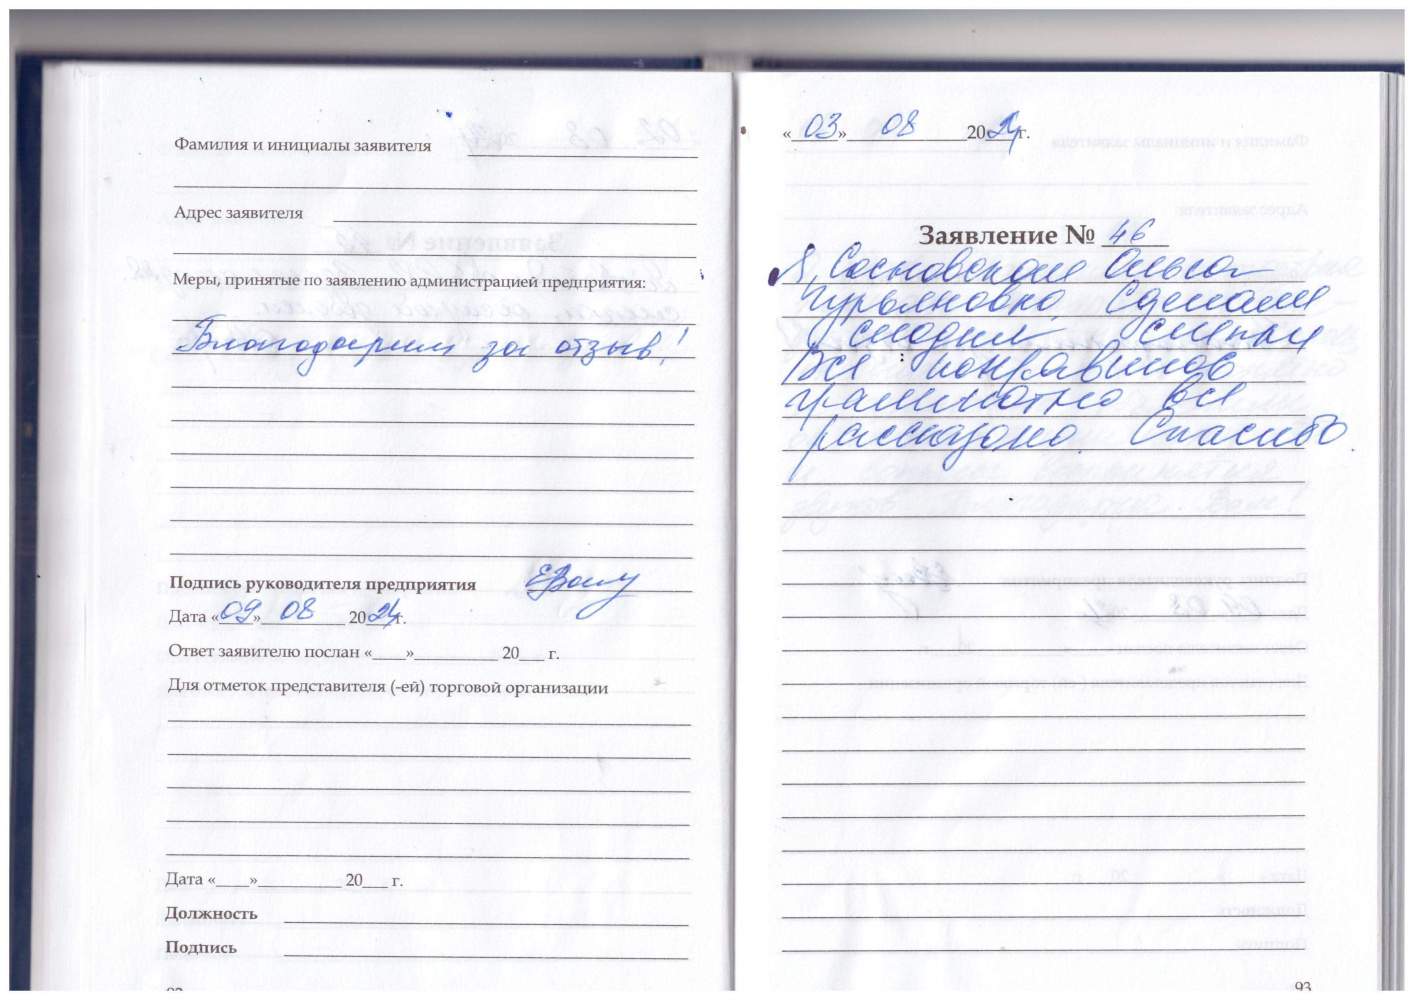 Фамилия и инициалы заявителя
Адрес заявителя
Меры, принятые по заявлению администрацией предприятия:
Благодарим за отзыв!
Подпись руководителя предприятия
Дата «09» 08 2024г.
Ответ заявителю послан «____»__________ 20___ г.
Для отметок представителя (-ей) торговой организации
Дата «____»__________ 20___ г.
Должность
Подпись
«03» 08 2024г.
Заявление № 46
Я, Сосновская Ольга
Гурьяновна. Сделали
снимки
Все понравилос
грамотно все
рассказано. Спасибо
93